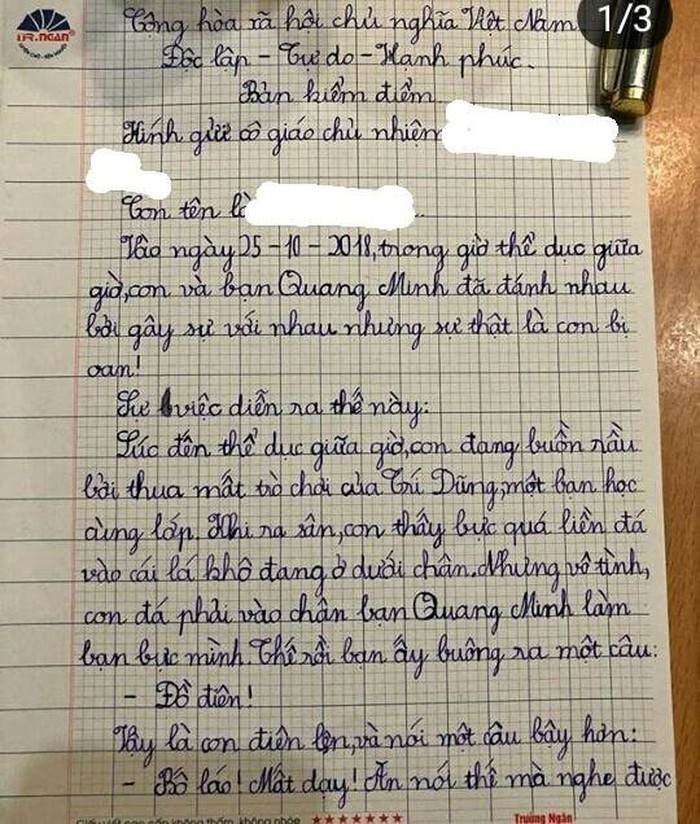 1/3
TR.NGAN
Cộng hòa xã hội chủ nghĩa Việt Nam
Độc lập - Tự do - Hạnh phúc.
Bản kiểm điểm
Kính gửi cô giáo chủ nhiệm
Con tên là
Vào ngày 25-10-2018, trong giờ thể dục giữa
giờ, con và bạn Quang Minh đã đánh nhau
bởi gây sự với nhau nhưng sự thật là con bị
oan!
Sự việc diễn ra thế này:
Lúc đến thể dục giữa giờ, con đang buồn rầu
bởi thua mất trò chơi của Trí Dũng, một bạn học
cùng lớp. Khi ra sân, con thấy bực quá liền đá
vào cái lá khô đang ở dưới chân. Nhưng vô tình,
con đá phải vào chân bạn Quang Minh làm
bạn bực mình. Thế rồi bạn ấy buông ra một câu:
- Đồ điên!
Vậy là con điên lên, và nói một câu bậy hơn:
- Bố láo! Mất dạy! Ăn nói thế mà nghe được
★★★★★★★ Trường Ngân